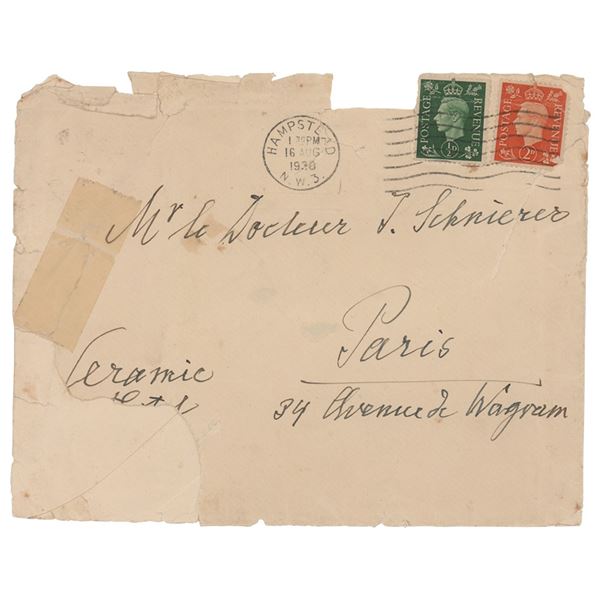 POSTAGE REVENUE
½D
POSTAGE REVENUE
2D
HAMPSTEAD
1 30PM
16 AUG
1938
N.W.3.
Mr le Docteur J. Schnierer
Paris
Ceramic
34 Avenue de Wagram